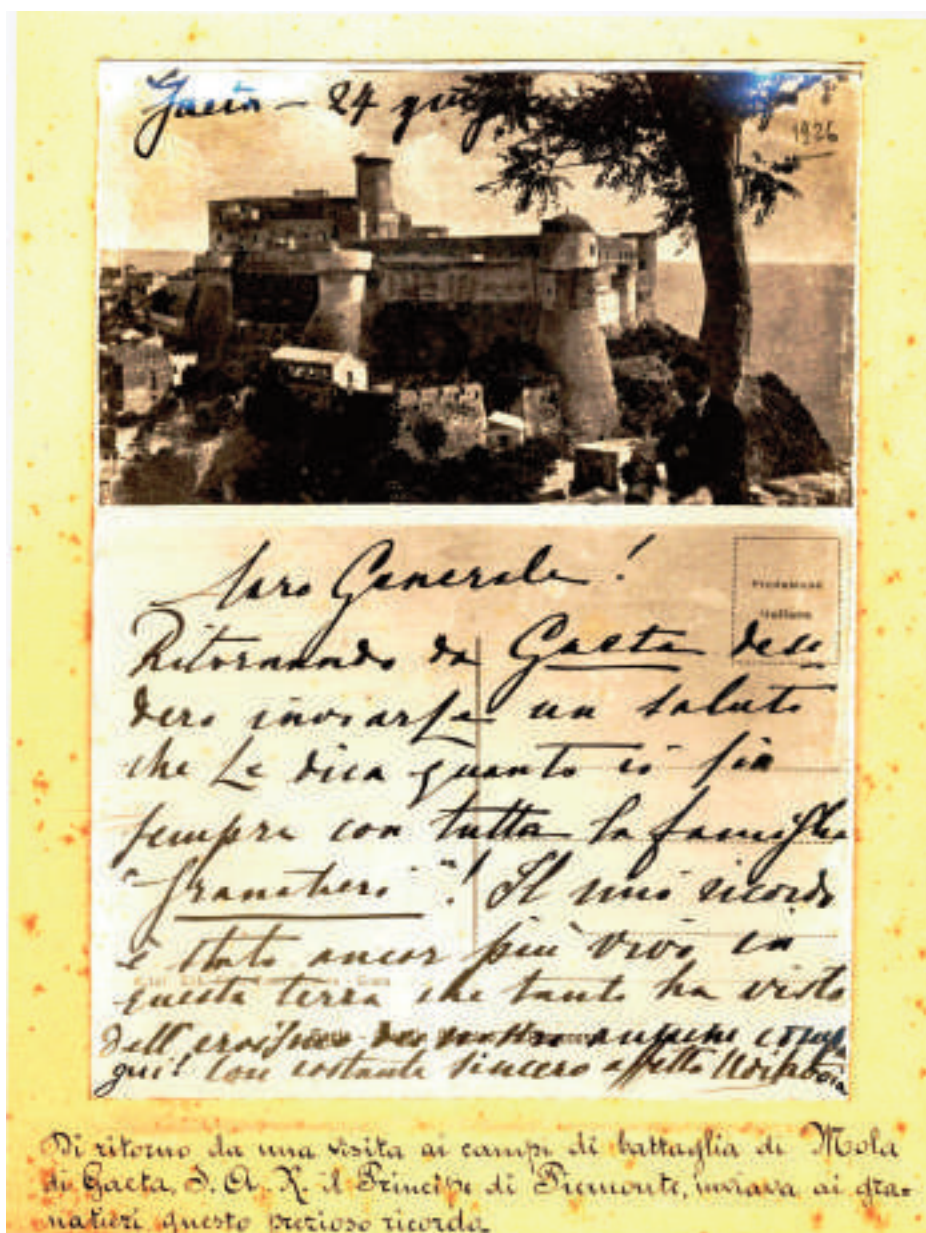 Gaeta - 24 giugno
1926
Caro Generale!
Ritornando da Gaeta desi
dero inviarLe un saluto
che Le dica quanto io sia
sempre con tutta la famiglia
"Granatieri"! Il mio ricordo
è stato ancor più vivo in
questa terra che tanto ha visto
dell'eroismo dei nostri
gui! Con costante sincero affetto
Di ritorno da una visita ai campi di battaglia di Mola
di Gaeta, S. A. R. il Principe di Piemonte, inviava ai gra=
natieri questo prezioso ricordo.